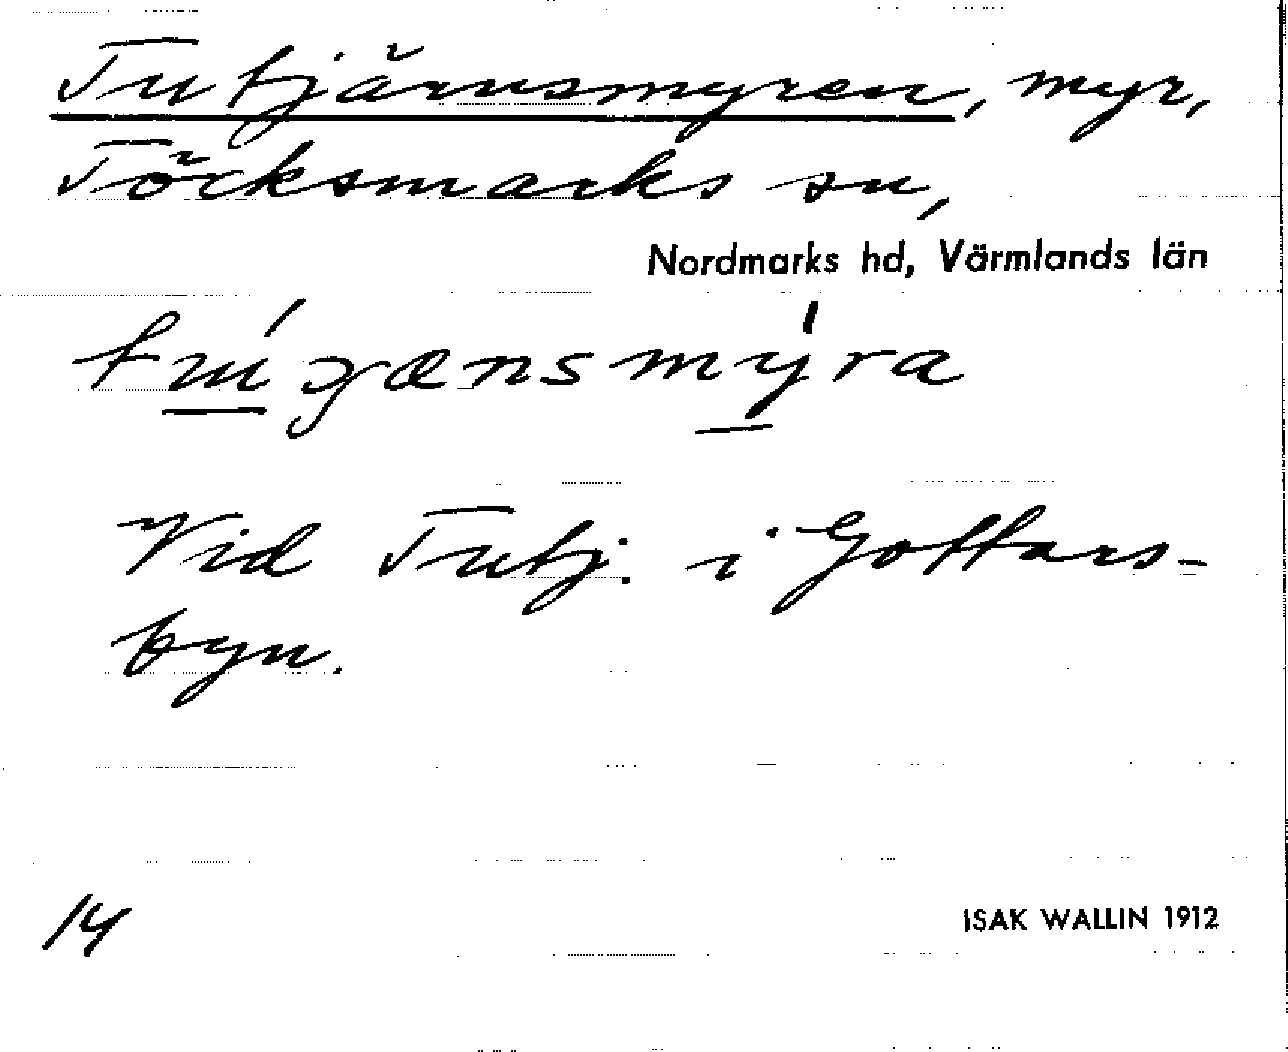 Tutjärnsmyren, myr,
Töcksmarks sn,
Nordmarks hd, Värmlands län
Vid Tutj. i Gottars-
byn.
14
ISAK WALLIN 1912